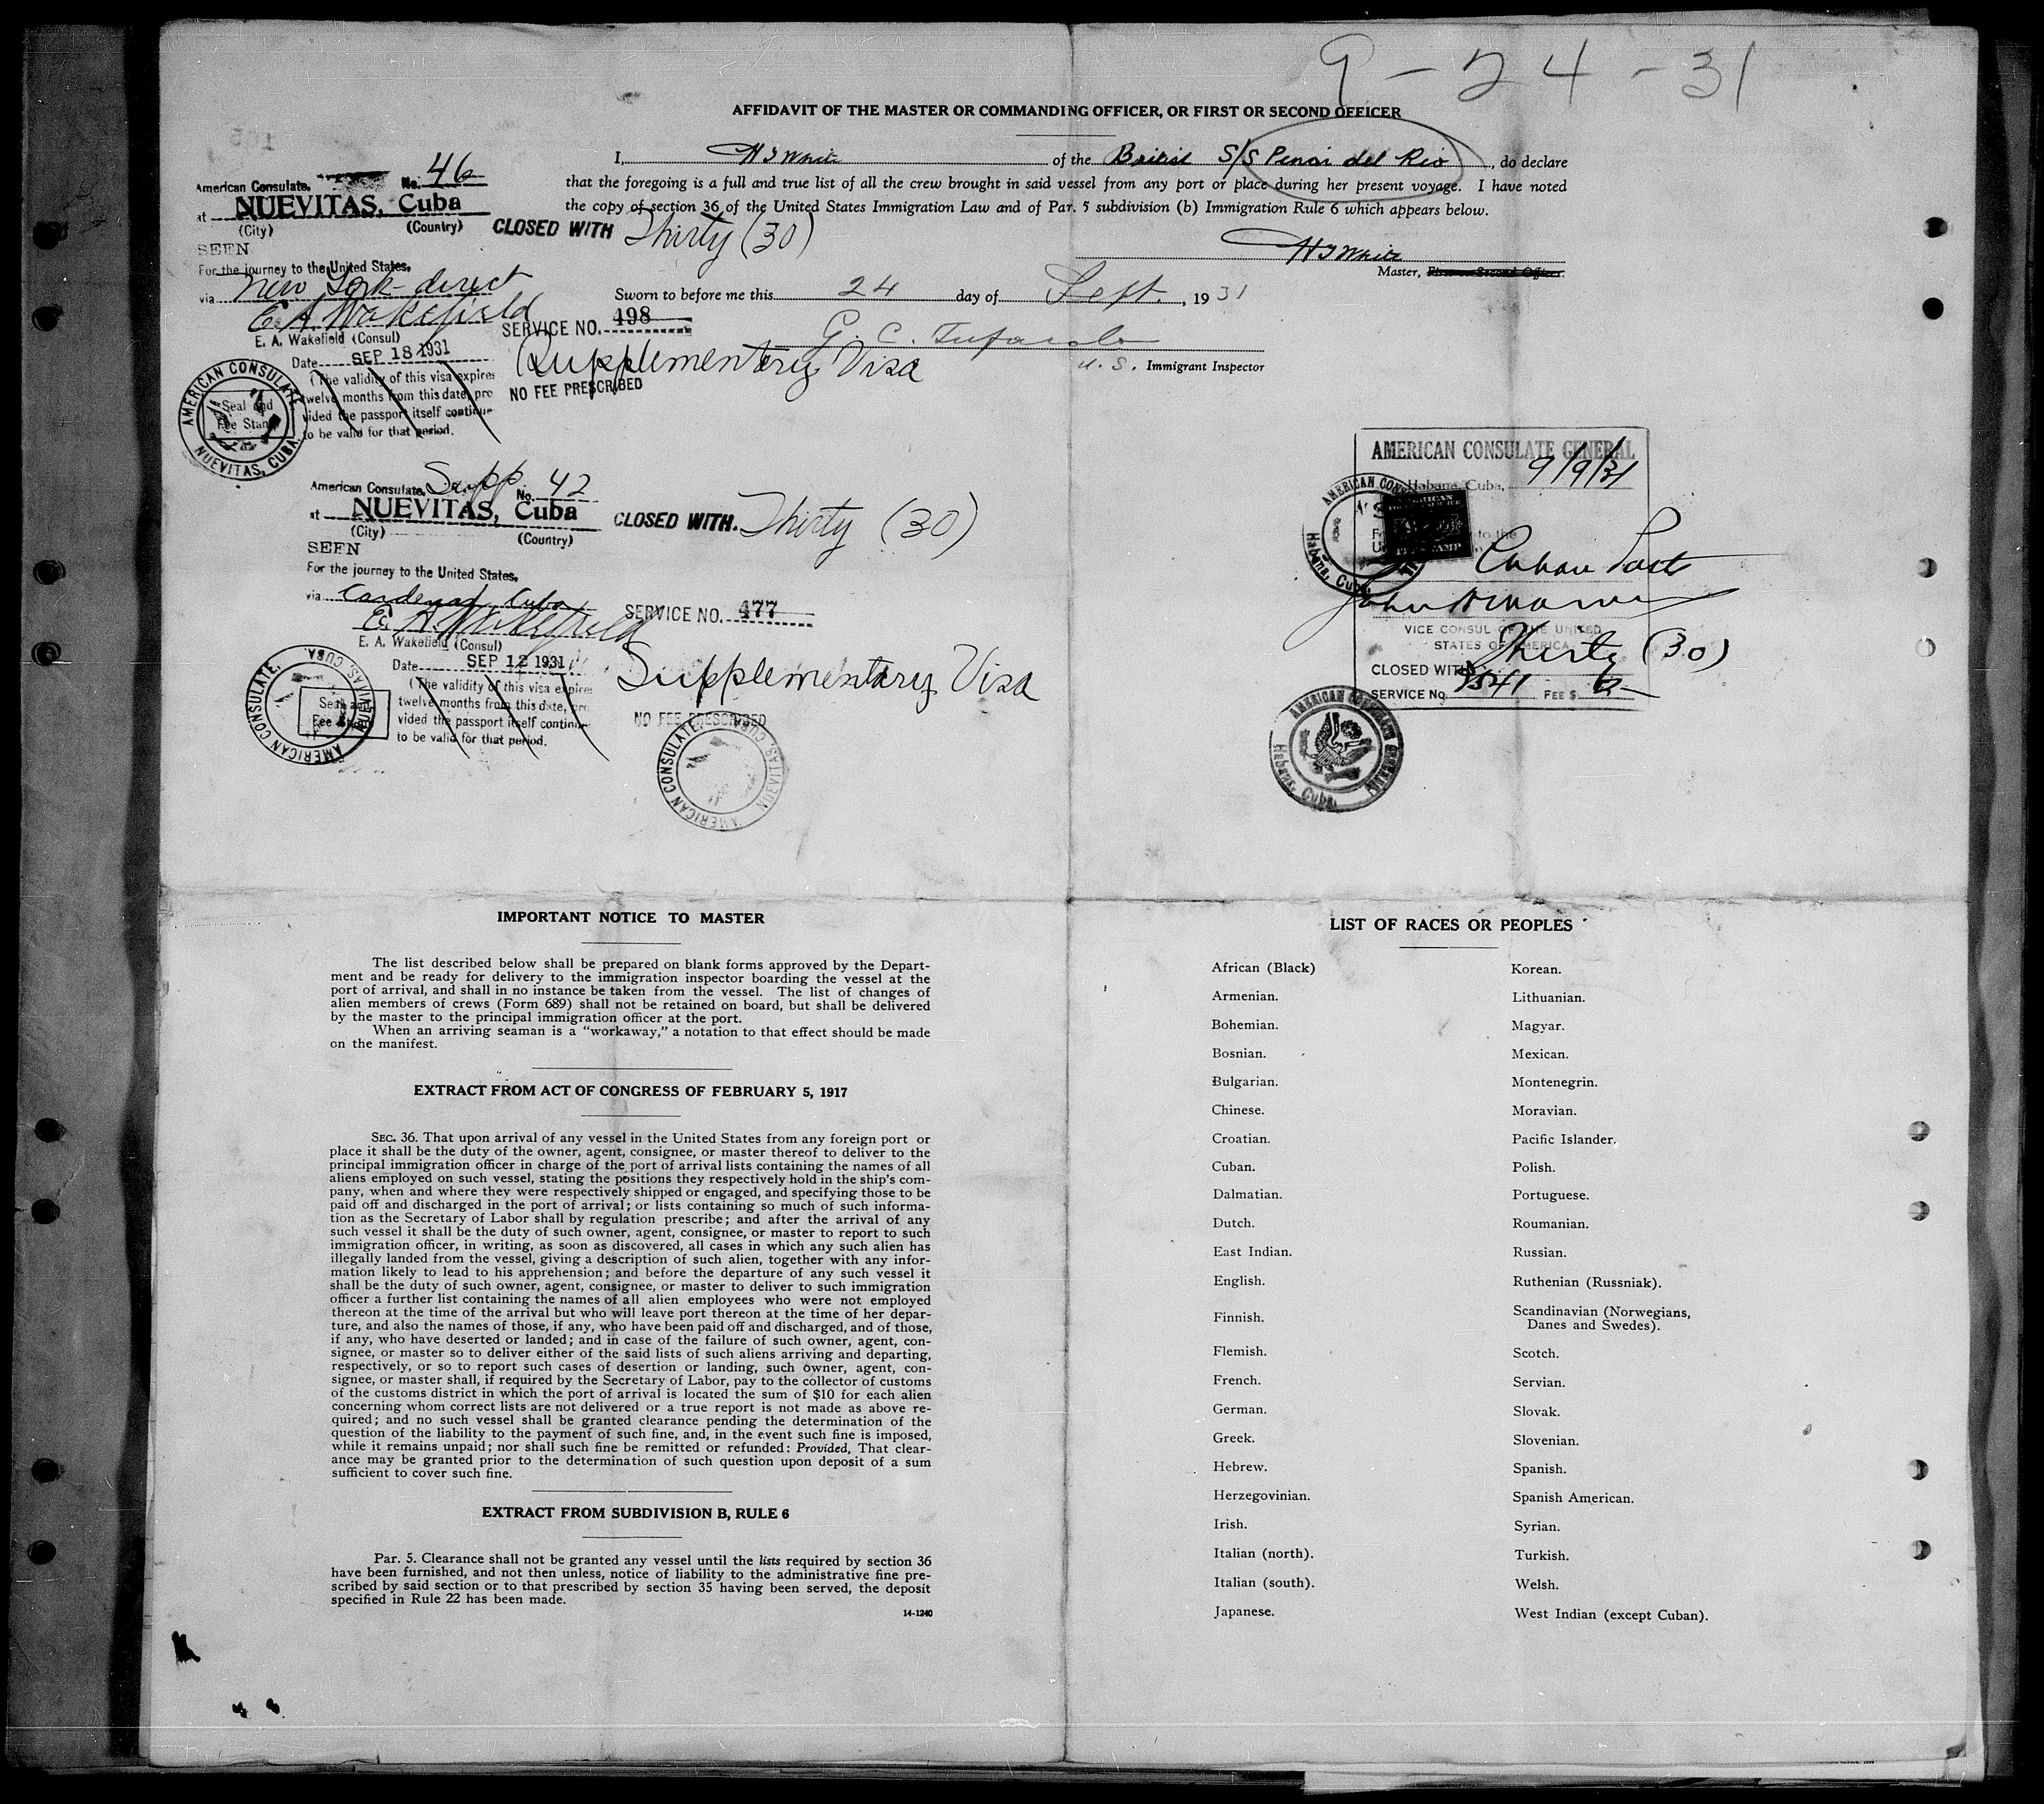 9-24-31
AFFIDAVIT OF THE MASTER OR COMMANDING OFFICER, OR FIRST OR SECOND OFFICER
I, H J White of the British S/S Penar del Rio, do declare
that the foregoing is a full and true list of all the crew brought in said vessel from any port or place during her present voyage. I have noted
the copy of section 36 of the United States Immigration Law and of Par. 5 subdivision (b) Immigration Rule 6 which appears below.
H J White
Master, First or Second Officer.
Sworn to before me this 24 day of Sept., 1931
G. C.
U. S. Immigrant Inspector
American Consulate, No. 46
at NUEVITAS, Cuba
(City) (Country)
CLOSED WITH Thirty (30)
SEEN
For the journey to the United States,
via New York direct
E. A. Wakefield
E. A. Wakefield (Consul)
SERVICE NO. 498
Date SEP 18 1931
Supplementary Visa
(The validity of this visa expires
twelve months from this date, pro
vided the passport itself continue
to be valid for that period.
NO FEE PRESCRIBED
Seal and
Fee Stamp
AMERICAN CONSULATE, NUEVITAS, CUBA.
American Consulate, Supp No. 42
at NUEVITAS, Cuba
(City) (Country)
CLOSED WITH. Thirty (30)
SEEN
For the journey to the United States,
via Cardenas, Cuba
E. A. Wakefield
E. A. Wakefield (Consul)
SERVICE NO. 477
Date SEP 12 1931
Supplementary Visa
(The validity of this visa expires
twelve months from this date, pro
vided the passport itself continue
to be valid for that period.
NO FEE PRESCRIBED
Seal and
Fee Stamp
AMERICAN CONSULATE, NUEVITAS, CUBA.
AMERICAN CONSULATE, NUEVITAS, CUBA.
AMERICAN CONSULATE GENERAL
Habana, Cuba, 9/9/31
to the
Cuban Ports
VICE CONSUL OF THE UNITED
STATES OF AMERICA
CLOSED WITH Thirty (30)
SERVICE No. FEE $
AMERICAN CONSULATE GENERAL
Habana, Cuba.
IMPORTANT NOTICE TO MASTER
The list described below shall be prepared on blank forms approved by the Depart-
ment and be ready for delivery to the immigration inspector boarding the vessel at the
port of arrival, and shall in no instance be taken from the vessel. The list of changes of
alien members of crews (Form 689) shall not be retained on board, but shall be delivered
by the master to the principal immigration officer at the port.
When an arriving seaman is a "workaway," a notation to that effect should be made
on the manifest.
EXTRACT FROM ACT OF CONGRESS OF FEBRUARY 5, 1917
SEC. 36. That upon arrival of any vessel in the United States from any foreign port or
place it shall be the duty of the owner, agent, consignee, or master thereof to deliver to the
principal immigration officer in charge of the port of arrival lists containing the names of all
aliens employed on such vessel, stating the positions they respectively hold in the ship's com-
pany, when and where they were respectively shipped or engaged, and specifying those to be
paid off and discharged in the port of arrival; or lists containing so much of such informa-
tion as the Secretary of Labor shall by regulation prescribe; and after the arrival of any
such vessel it shall be the duty of such owner, agent, consignee, or master to report to such
immigration officer, in writing, as soon as discovered, all cases in which any such alien has
illegally landed from the vessel, giving a description of such alien, together with any infor-
mation likely to lead to his apprehension; and before the departure of any such vessel it
shall be the duty of such owner, agent, consignee, or master to deliver to such immigration
officer a further list containing the names of all alien employees who were not employed
thereon at the time of the arrival but who will leave port thereon at the time of her depar-
ture, and also the names of those, if any, who have been paid off and discharged, and of those,
if any, who have deserted or landed; and in case of the failure of such owner, agent, con-
signee, or master so to deliver either of the said lists of such aliens arriving and departing,
respectively, or so to report such cases of desertion or landing, such owner, agent, con-
signee, or master shall, if required by the Secretary of Labor, pay to the collector of customs
of the customs district in which the port of arrival is located the sum of $10 for each alien
concerning whom correct lists are not delivered or a true report is not made as above re-
quired; and no such vessel shall be granted clearance pending the determination of the
question of the liability to the payment of such fine, and, in the event such fine is imposed,
while it remains unpaid; nor shall such fine be remitted or refunded: Provided, That clear-
ance may be granted prior to the determination of such question upon deposit of a sum
sufficient to cover such fine.
EXTRACT FROM SUBDIVISION B, RULE 6
Par. 5. Clearance shall not be granted any vessel until the lists required by section 36
have been furnished, and not then unless, notice of liability to the administrative fine pre-
scribed by said section or to that prescribed by section 35 having been served, the deposit
specified in Rule 22 has been made.
14-1240
LIST OF RACES OR PEOPLES
African (Black)
Armenian.
Bohemian.
Bosnian.
Bulgarian.
Chinese.
Croatian.
Cuban.
Dalmatian.
Dutch.
East Indian.
English.
Finnish.
Flemish.
French.
German.
Greek.
Hebrew.
Herzegovinian.
Irish.
Italian (north).
Italian (south).
Japanese.
Korean.
Lithuanian.
Magyar.
Mexican.
Montenegrin.
Moravian.
Pacific Islander.
Polish.
Portuguese.
Roumanian.
Russian.
Ruthenian (Russniak).
Scandinavian (Norwegians,
Danes and Swedes).
Scotch.
Servian.
Slovak.
Slovenian.
Spanish.
Spanish American.
Syrian.
Turkish.
Welsh.
West Indian (except Cuban).